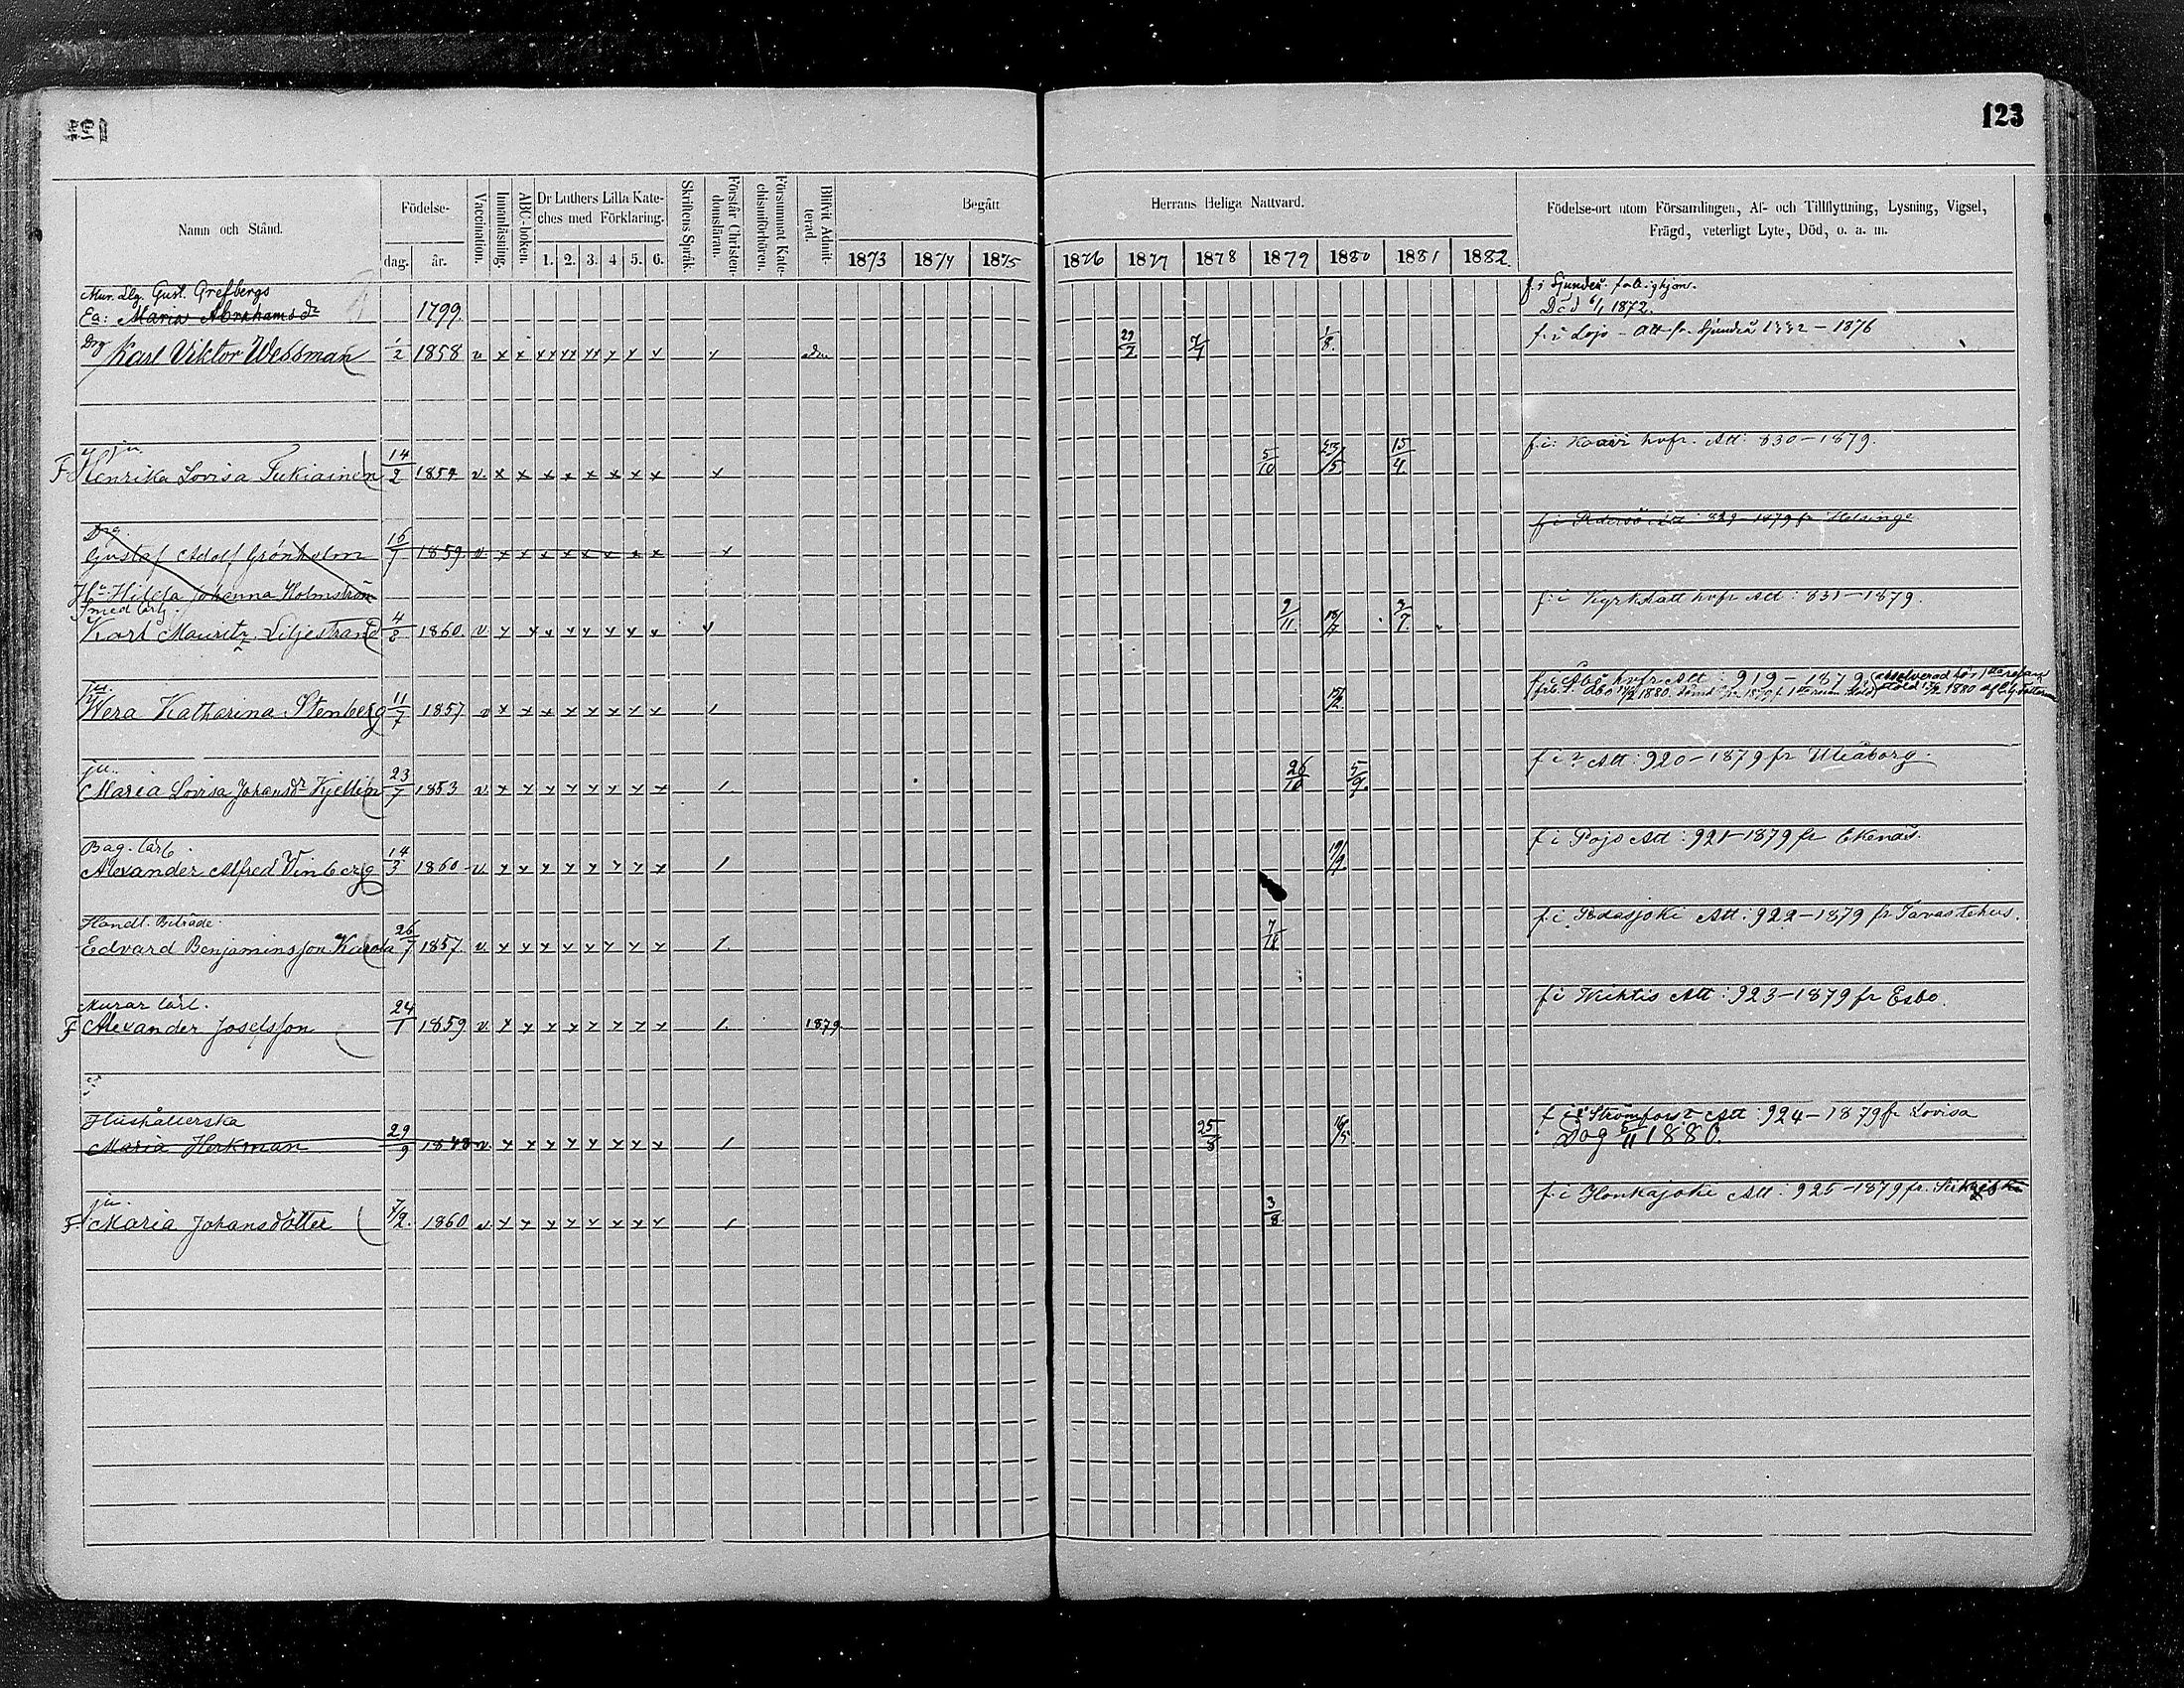 123
Namn och Stånd.
Födelse-
dag.
år.
Vaccination.
Innanläsning.
ABC-boken.
Dr Luthers Lilla Kate-
ches med Förklaring.
1. 2. 3. 4 5. 6.
Skriftens Språk.
Förstår Christen-
domsläran.
Försummat Kate-
chismiförhören.
Blifvit Admit-
terad.
Begått
Herrans Heliga Nattvard.
1873 1874 1875 1876 1877 1878 1879 1880 1881 1882
Födelse-ort utom Församlingen, Af- och Tillflyttning, Lysning, Vigsel,
Frägd, veterligt Lyte, Död, o. a. m.
Mur. Slg. Gust. Grefbergs
f. i Sjundeå
Ea: Maria Abrahamsdr 1799
Död 6/1 1872.
Drg
Karl Viktor Wessman 1/2 1858 v x x x x x x x x 29/7 7/7 1/8
f. i Lojo - Att fr. Sjundeå 1332-1876
ju.
F Henrika Lovisa Tukiainen 14/2 1854 v. x x x x x x x x x 5/10 15/4
f. i: Koaivi hvfr. Att: 830-1879.
Drg.
Gustaf Adolf Grönholm 16/7 1859 v x x x x x x x x x
Att: 829-1879 fr Helsinge
Hu Hilda Johanna Holmström
Karl Mauritz Liljestrand 4/8 1860 v x x x x x x x x 9/11 18/7 3/7.
f. i Kyrkslätt hvfr Att: 831-1879.
ju.
Wera Katharina Stenberg 11/7 1857 v x x x x x x x x 15/2
f. i Åbo hvfr Att: 919-1879
ju.
Maria Lovisa Johansdr Kjellin 23/7 1853 v x x x x x x x x 26/10 5/9.
f i? Att: 920-1879 fr Uleåborg.
Bag. lärl.
Alexander Alfred Winberg 14/3 1860 v. x x x x x x x x 19/9.
f i Pojo Att: 921-1879 fr Ekenäs.
Handl. Biträde
Edvard Benjaminsson Kurola 26/7 1857 v. x x x x x x x x 7/12
f. i Padasjoki Att: 922-1879 fr Tavastehus.
Murar lärl.
F Alexander Josefsson 24/1 1859 v. x x x x x x x x 1879
f i Wichtis Att: 923-1879 fr Esbo.
Hushållerska
Maria Herkman 29/9 1843 v x x x x x x x x 25/8 16/5.
f. i Strömfors Att: 924-1879 fr Lovisa
Dog 5/11 1880.
ju.
F. Maria Johansdotter 7/2. 1860 v x x x x x x x x 3/8
f. i Honkajoki Att: 925-1879 fr.